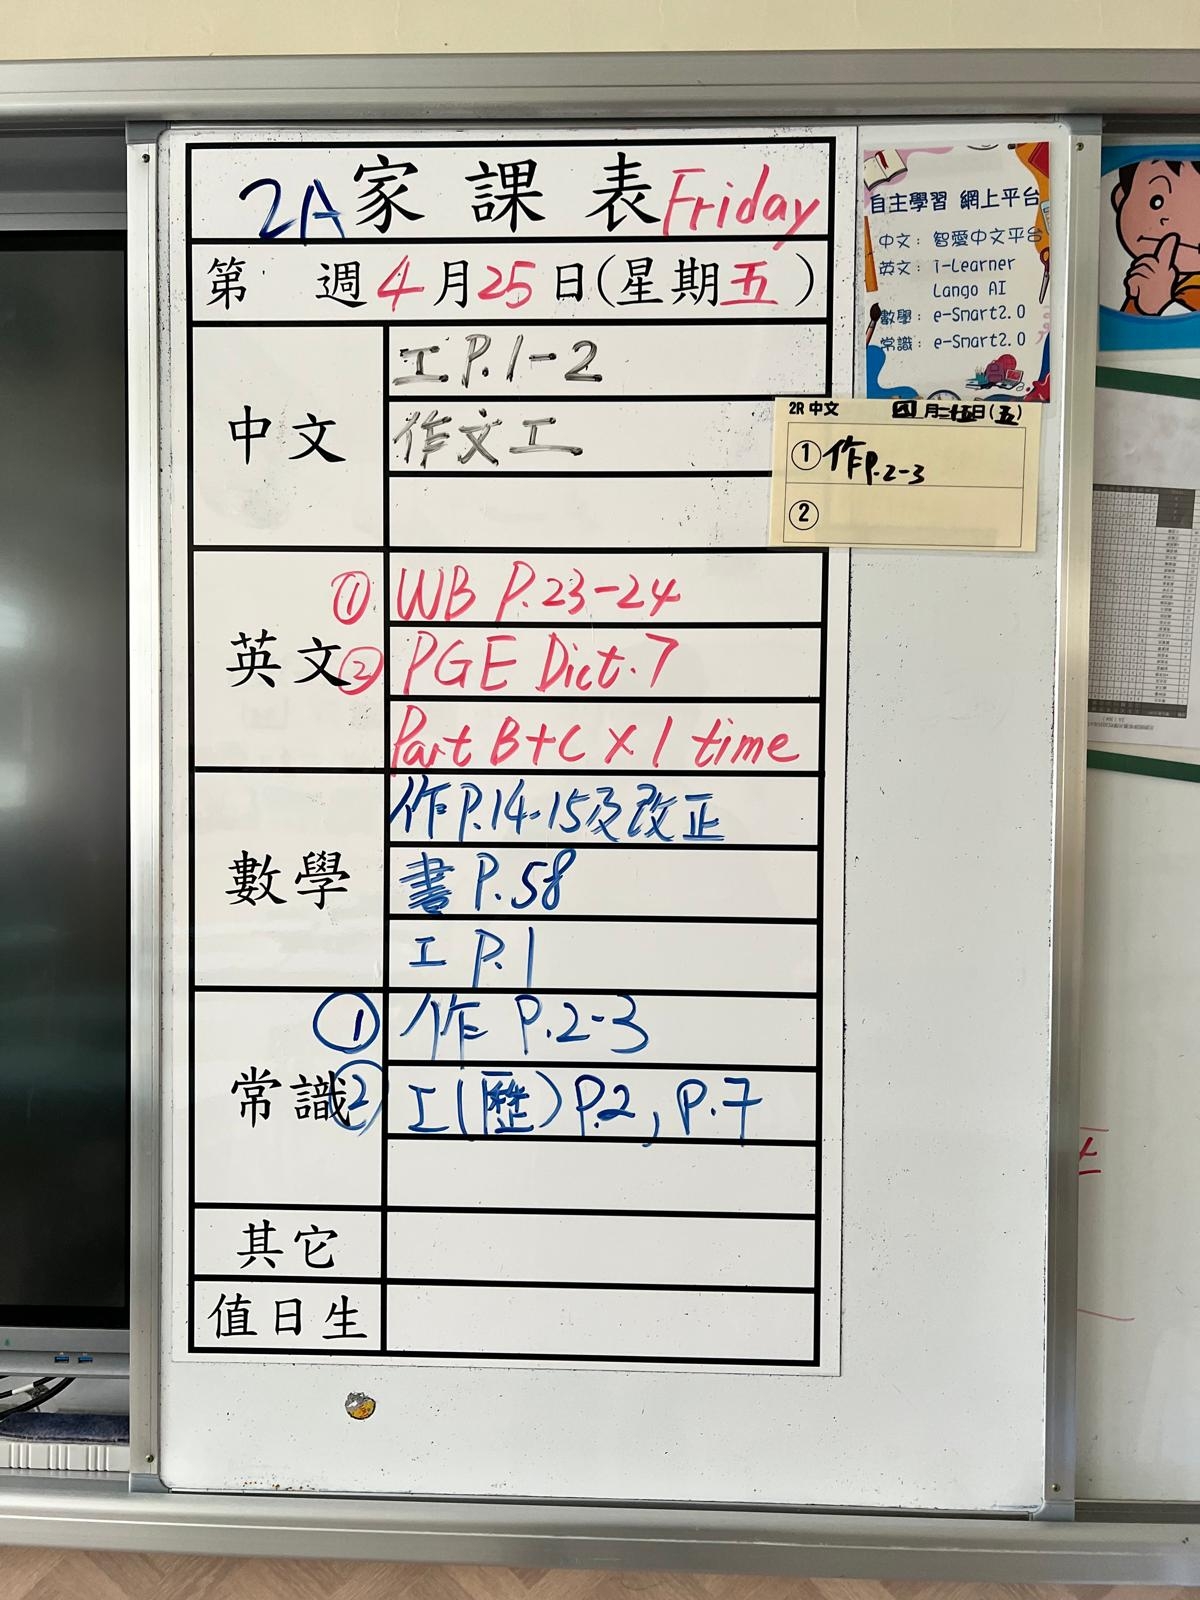 2A家課表Friday
第 週4月25日(星期五)
中文
工P.1-2
作文工
英文
① WB P.23-24
② PGE Dict.7
Part B+C x 1 time
數學
作P.14-15及改正
書P.58
工 P.1
常識
① 作 P.2-3
② 工(歷)P.2, P.7
其它
值日生
自主學習 網上平台
中文: 智愛中文平台
英文: i-Learner
Lango AI
數學: e-Smart2.0
常識: e-Smart2.0
2R 中文 四月二十五日(五)
① 作P.2-3
②